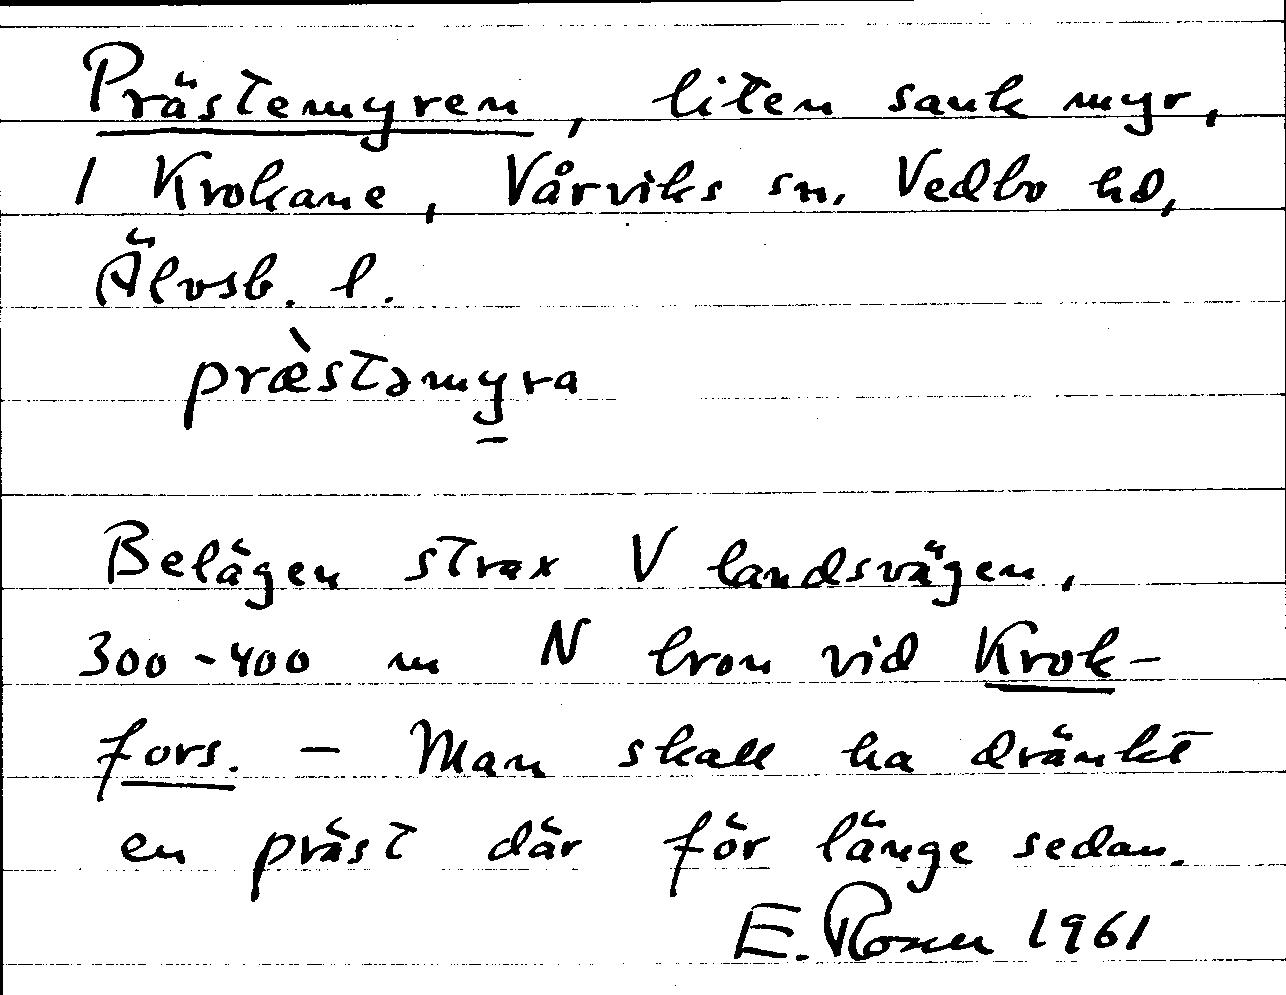 Prästemyren, liten sank myr,
I Krokane, Vårviks sn. Vedbo hd,
Älvsb. l.
præ̀stəmyra
Belägen strax V landsvägen,
300-400 m N bron vid Krok-
fors. - Man skall ha dränkt
en präst där för länge sedan.
E. 1961